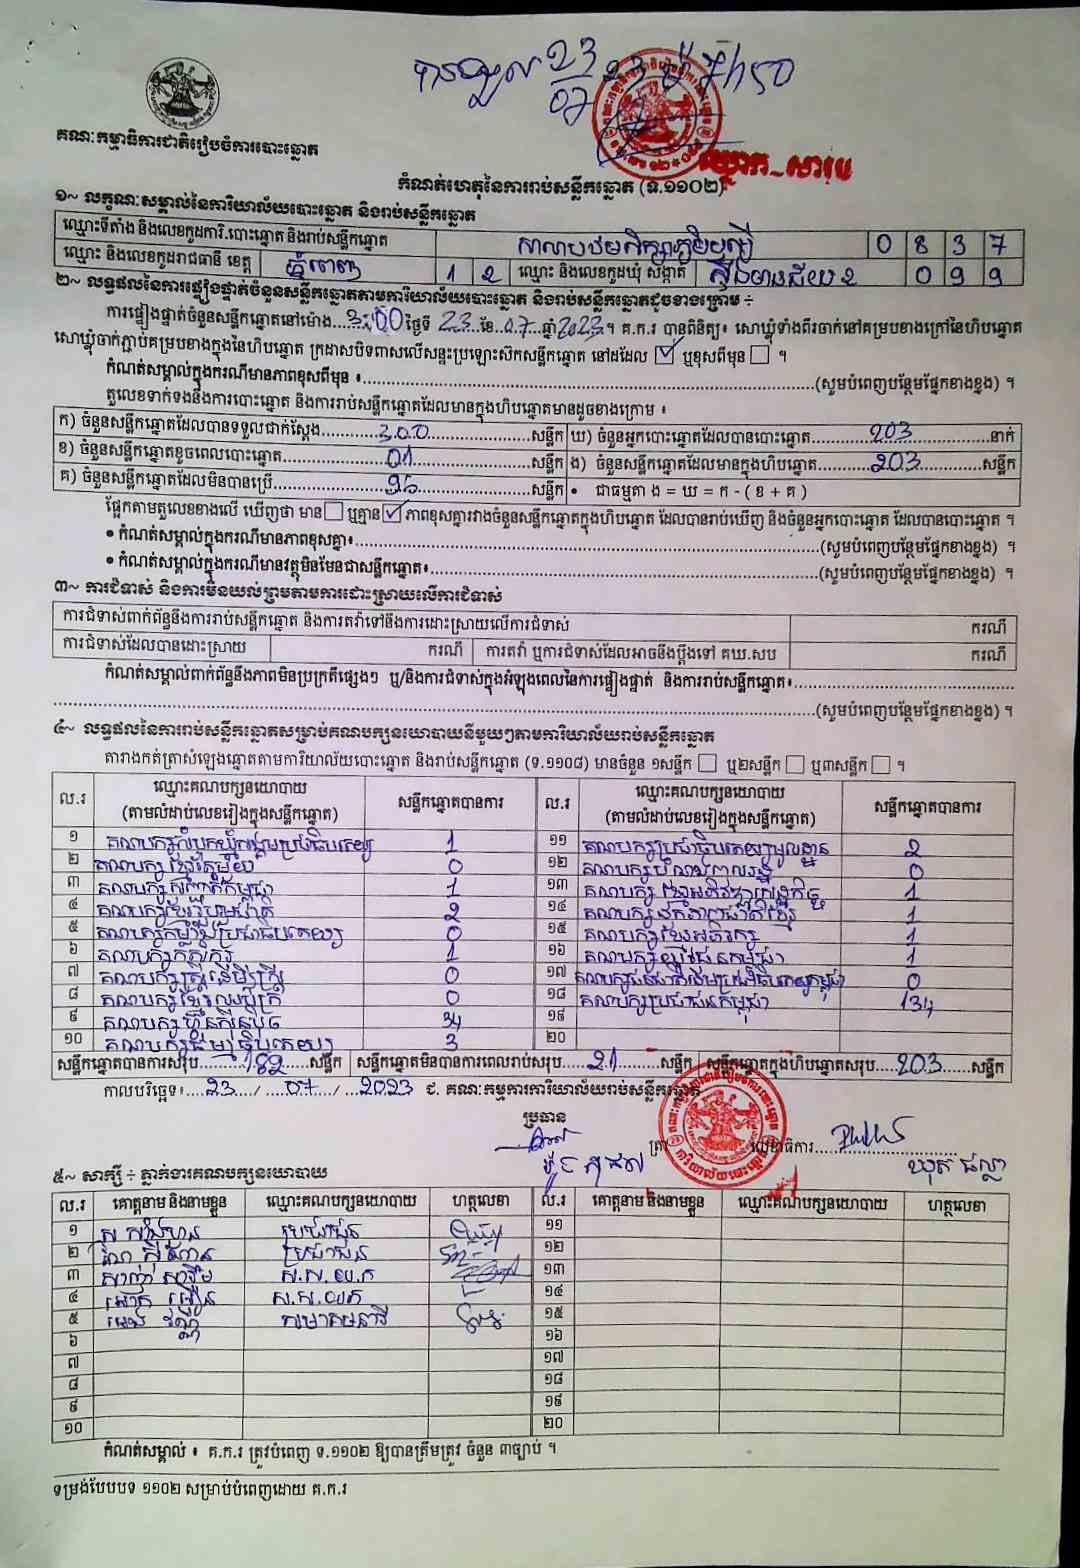 បានឃើញ 23 07 23 ម៉ 7h50
គណៈកម្មាធិការជាតិរៀបចំការបោះឆ្នោត
កំណត់ហេតុនៃការរាប់សន្លឹកឆ្នោត (ទ.១១០២)
១~ លក្ខណៈសម្គាល់នៃការិយាល័យបោះឆ្នោត និងរាប់សន្លឹកឆ្នោត
ឈ្មោះទីតាំង និងលេខកូដការិ.បោះឆ្នោត និងរាប់សន្លឹកឆ្នោត សាលាបឋមសិក្សាភូមិឫស្សី 0 8 3 7
ឈ្មោះ និងលេខកូដរាជធានី ខេត្ត ភ្នំពេញ 1 2 ឈ្មោះ និងលេខកូដឃុំ សង្កាត់ ស្ទឹងមានជ័យ 2 0 9 9
២~ លទ្ធផលនៃការផ្ទៀងផ្ទាត់ចំនួនសន្លឹកឆ្នោតតាមការិយាល័យបោះឆ្នោត និងរាប់សន្លឹកឆ្នោតដូចខាងក្រោម ÷
ការផ្ទៀងផ្ទាត់ចំនួនសន្លឹកឆ្នោតនៅម៉ោង...3:00 ថ្ងៃទី 23 ខែ 07 ឆ្នាំ 2023 ។ គ.ក.រ បានពិនិត្យ៖ សោឃ្លុំទាំងពីរចាក់នៅគម្របខាងក្រៅនៃហិបឆ្នោត
សោឃ្លុំចាក់ភ្ជាប់គម្របខាងក្នុងនៃហិបឆ្នោត ក្រដាសបិទពាសលើសន្ទះប្រឡោះស៊កសន្លឹកឆ្នោត នៅដដែល ☑ ឬខុសពីមុន ☐ ។
កំណត់សម្គាល់ក្នុងករណីមានភាពខុសពីមុន ៖...(សូមបំពេញបន្ថែមផ្នែកខាងខ្នង) ។
តួលេខទាក់ទងនឹងការបោះឆ្នោត និងការរាប់សន្លឹកឆ្នោតដែលមានក្នុងហិបឆ្នោតមានដូចខាងក្រោម ៖
ក) ចំនួនសន្លឹកឆ្នោតដែលបានទទួលជាក់ស្តែង...300...សន្លឹក ឃ) ចំនួនអ្នកបោះឆ្នោតដែលបានបោះឆ្នោត...203...នាក់
ខ) ចំនួនសន្លឹកឆ្នោតខូចពេលបោះឆ្នោត...01...សន្លឹក ង) ចំនួនសន្លឹកឆ្នោតដែលមានក្នុងហិបឆ្នោត...203...សន្លឹក
គ) ចំនួនសន្លឹកឆ្នោតដែលមិនបានប្រើ...96...សន្លឹក • ជាធម្មតា ង = ឃ = ក - ( ខ + គ )
ផ្អែកតាមតួលេខខាងលើ ឃើញថា មាន ☐ ឬគ្មាន ☑ ភាពខុសគ្នារវាងចំនួនសន្លឹកឆ្នោតក្នុងហិបឆ្នោត ដែលបានរាប់ឃើញ និងចំនួនអ្នកបោះឆ្នោត ដែលបានបោះឆ្នោត ។
• កំណត់សម្គាល់ក្នុងករណីមានភាពខុសគ្នា៖...(សូមបំពេញបន្ថែមផ្នែកខាងខ្នង) ។
• កំណត់សម្គាល់ក្នុងករណីមានវត្ថុមិនមែនជាសន្លឹកឆ្នោត៖...(សូមបំពេញបន្ថែមផ្នែកខាងខ្នង) ។
៣~ ការជំទាស់ និងការមិនយល់ព្រមតាមការដោះស្រាយលើការជំទាស់
ការជំទាស់ពាក់ព័ន្ធនឹងការរាប់សន្លឹកឆ្នោត និងការតវ៉ាទៅនឹងការដោះស្រាយលើការជំទាស់ ករណី
ការជំទាស់ដែលបានដោះស្រាយ ករណី ការតវ៉ា ឬការជំទាស់ដែលអាចនឹងប្តឹងទៅ គឃ.សប ករណី
កំណត់សម្គាល់ពាក់ព័ន្ធនឹងភាពមិនប្រក្រតីផ្សេងៗ ឬ/និងការជំទាស់ក្នុងអំឡុងពេលនៃការផ្ទៀងផ្ទាត់ និងការរាប់សន្លឹកឆ្នោត៖...
...(សូមបំពេញបន្ថែមផ្នែកខាងខ្នង) ។
៤~ លទ្ធផលនៃការរាប់សន្លឹកឆ្នោតសម្រាប់គណបក្សនយោបាយនីមួយៗតាមការិយាល័យរាប់សន្លឹកឆ្នោត
តារាងកត់ត្រាសំឡេងឆ្នោតតាមការិយាល័យបោះឆ្នោត និងរាប់សន្លឹកឆ្នោត (ទ.១១០៨) មានចំនួន ១សន្លឹក ☐ ឬ២សន្លឹក ☐ ឬ៣សន្លឹក ☐ ។
ល.រ ឈ្មោះគណបក្សនយោបាយ (តាមលំដាប់លេខរៀងក្នុងសន្លឹកឆ្នោត) សន្លឹកឆ្នោតបានការ ល.រ ឈ្មោះគណបក្សនយោបាយ (តាមលំដាប់លេខរៀងក្នុងសន្លឹកឆ្នោត) សន្លឹកឆ្នោតបានការ
១ គណបក្សសំបុកឃ្មុំសង្គមប្រជាធិបតេយ្យ 1 ១១ គណបក្សប្រជាធិបតេយ្យមូលដ្ឋាន 2
២ គណបក្សខ្មែររៃសម័យ 0 ១២ គណបក្ស 0
៣ គណបក្សសញ្ជាតិកម្ពុជា 1 ១៣ គណបក្សខ្មែរអភិវឌ្ឍន៍សេដ្ឋកិច្ច 1
៤ គណបក្សខ្មែររួបរួមជាតិ 2 ១៤ គណបក្សឯកភាពជាតិខ្មែរ 1
៥ គណបក្សកម្លាំងប្រជាធិបតេយ្យ 0 ១៥ គណបក្សខ្មែរអភិរក្ស 1
៦ គណបក្សកសិករ 1 ១៦ គណបក្សយុវជនកម្ពុជា 1
៧ គណបក្សស្ត្រីដើម្បីស្ត្រី 0 ១៧ គណបក្សជនជាតិដើមប្រជាធិបតេយ្យកម្ពុជា 0
៨ គណបក្សខ្មែរឈប់ក្រ 0 ១៨ គណបក្សប្រជាជនកម្ពុជា 134
៩ គណបក្សហ៊្វុនស៊ិនប៉ិច 34 ១៩
១០ គណបក្សធម្មាធិបតេយ្យ 3 ២០
សន្លឹកឆ្នោតបានការសរុប...182...សន្លឹក សន្លឹកឆ្នោតមិនបានការពេលរាប់សរុប...21...សន្លឹក សន្លឹកឆ្នោតក្នុងហិបឆ្នោតសរុប...203...សន្លឹក
កាលបរិច្ឆេទ៖ 23 / 07 / 2023 ជ. គណៈកម្មការការិយាល័យរាប់សន្លឹកឆ្នោត
ប្រធាន
ត្រា លេខាធិការ
៥~ សាក្សី ÷ ភ្នាក់ងារគណបក្សនយោបាយ
ល.រ គោត្តនាម និងនាមខ្លួន ឈ្មោះគណបក្សនយោបាយ ហត្ថលេខា ល.រ គោត្តនាម និងនាមខ្លួន ឈ្មោះគណបក្សនយោបាយ ហត្ថលេខា
១ ប្រជាជន ១១
២ ប្រជាជន ១២
៣ ស.ស.យ.ក ១៣
៤ ស.ស.យ.ក ១៤
៥ ១៥
៦ ១៦
៧ ១៧
៨ ១៨
៩ ១៩
១០ ២០
កំណត់សម្គាល់ ៖ គ.ក.រ ត្រូវបំពេញ ទ.១១០២ ឱ្យបានត្រឹមត្រូវ ចំនួន ៣ច្បាប់ ។
ទម្រង់បែបបទ ១១០២ សម្រាប់បំពេញដោយ គ.ក.រ